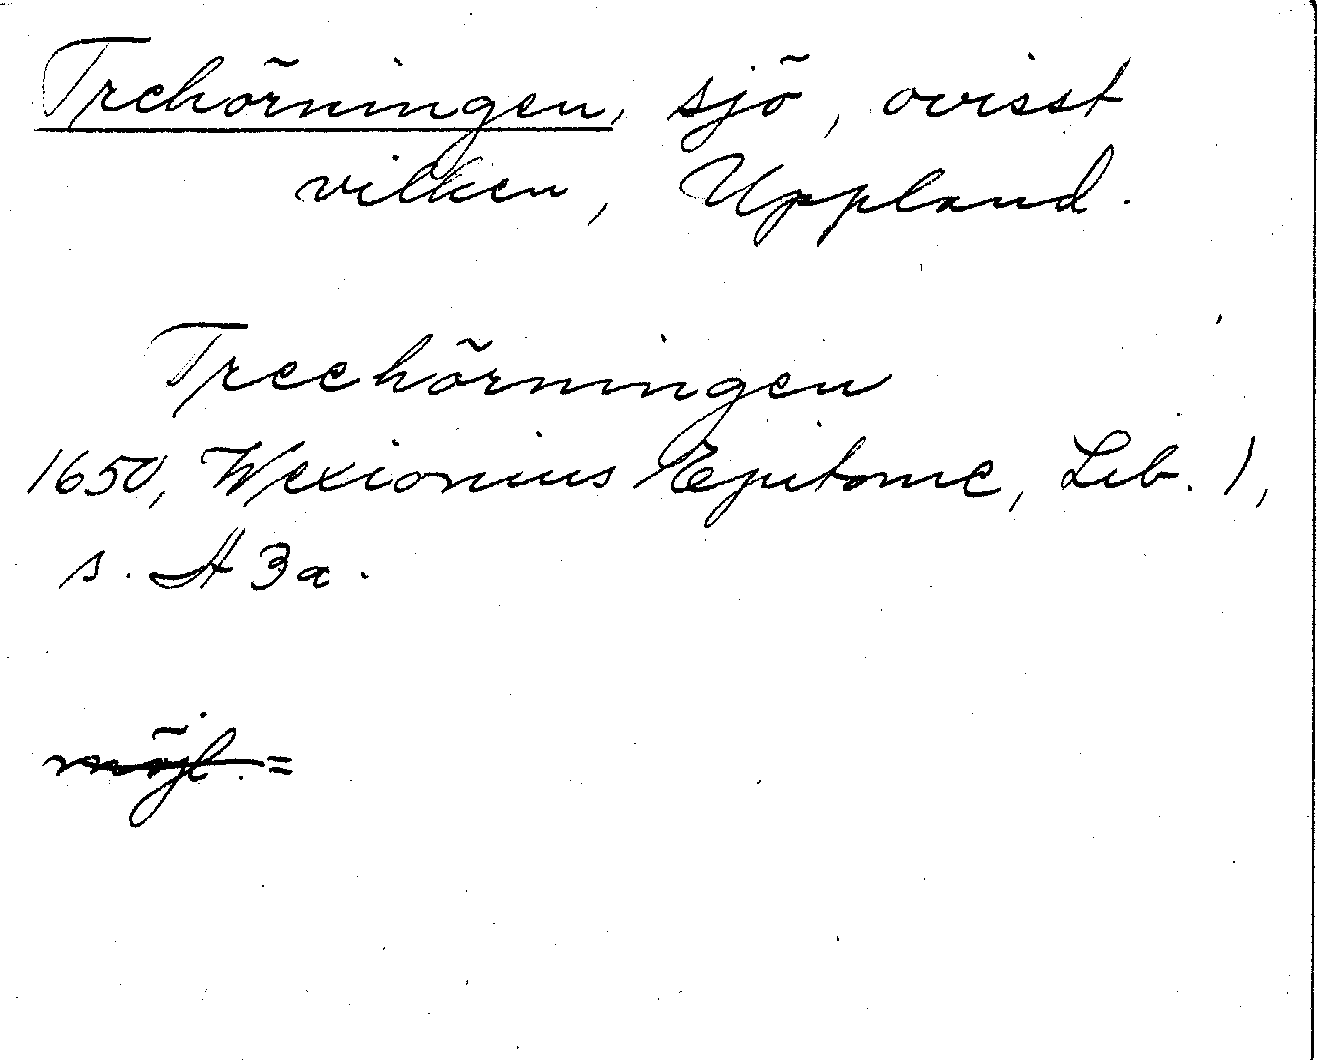 Trehörningen, sjö, ovisst
vilken, Uppland.
Treehörningen
1650, Wexionius Epitome, Lib. 1,
s. A 3a.
möjl. =